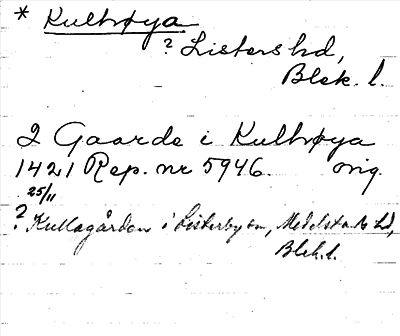 * Kulhrøya
? Listers hd,
Blek. l.
2 Gaarde i Kulhrøya
1421 Rep. nr 5946. orig.
25/11
? Kullagården i Listerbyen, Medelstads hd,
Blek. l.